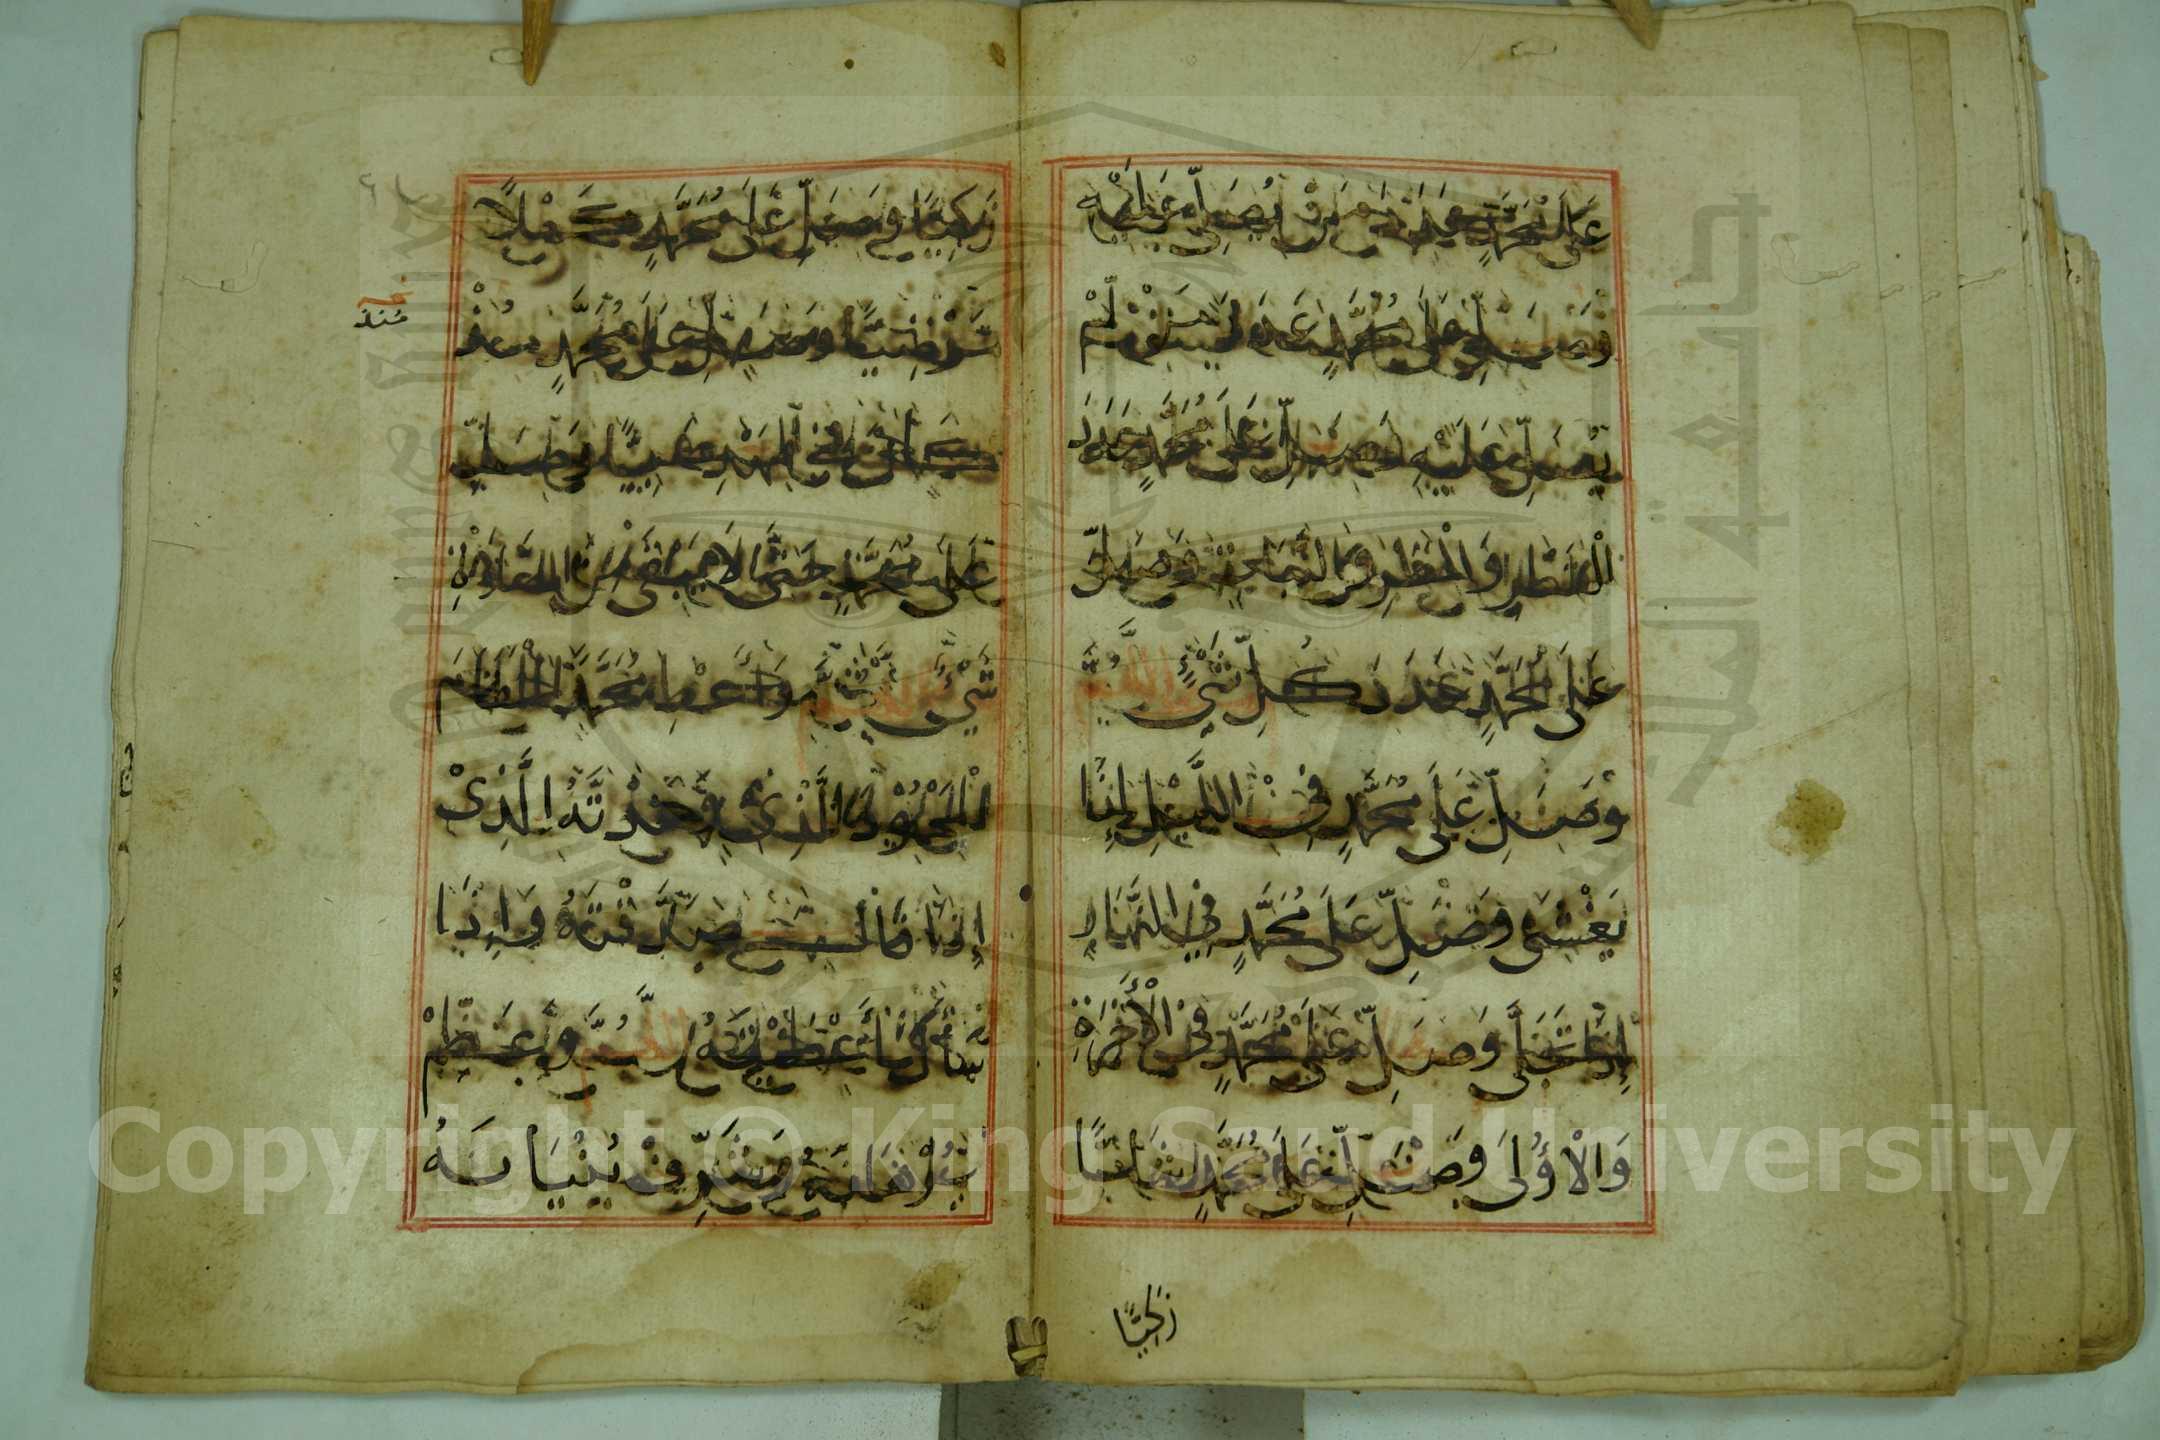 عَلَى مُحَمَّدٍ عَدَدَ مَنْ يُصَلِّي عَلَيْهِ
وَصَلِّ عَلَى مُحَمَّدٍ عَدَدَ مَنْ لَمْ
يُصَلِّ عَلَيْهِ وَصَلِّ عَلَى مُحَمَّدٍ عَدَدَ
الْقَطْرِ وَالْمَطَرِ وَالنَّبَاتِ وَصَلِّ
عَلَى مُحَمَّدٍ عَدَدَ كُلِّ شَيْءٍ
وَصَلِّ عَلَى مُحَمَّدٍ فِي اللَّيْلِ إِذَا
يَغْشَى وَصَلِّ عَلَى مُحَمَّدٍ فِي النَّهَارِ
إِذَا تَجَلَّى وَصَلِّ عَلَى مُحَمَّدٍ فِي الْأَخِرَةِ
وَالْأُولَى وَصَلِّ عَلَى مُحَمَّدٍ شَابًّا
زَكِيًّا
زَكِيًّا وَصَلِّ عَلَى مُحَمَّدٍ كَهْلًا
مَرْضِيًّا وَصَلِّ عَلَى مُحَمَّدٍ مُنْذُ
كَانَ فِي الْمَهْدِ صَبِيًّا وَصَلِّ
عَلَى مُحَمَّدٍ حَتَّى لَا يَبْقَى مِنَ الصَّلَاةِ
شَيْءٌ وَأَعْطِ مُحَمَّدًا الْمَقَامَ
الْمَحْمُودَ الَّذِي وَعَدْتَهُ الَّذِي
إِذَا قَالَ صَدَّقْتَهُ وَإِذَا
سَأَلَ أَعْطَيْتَهُ وَعَظِّمْ
بُرْهَانَهُ وَشَرِّفْ بُنْيَانَهُ
مُنْذُ
Copyright © King Saud University